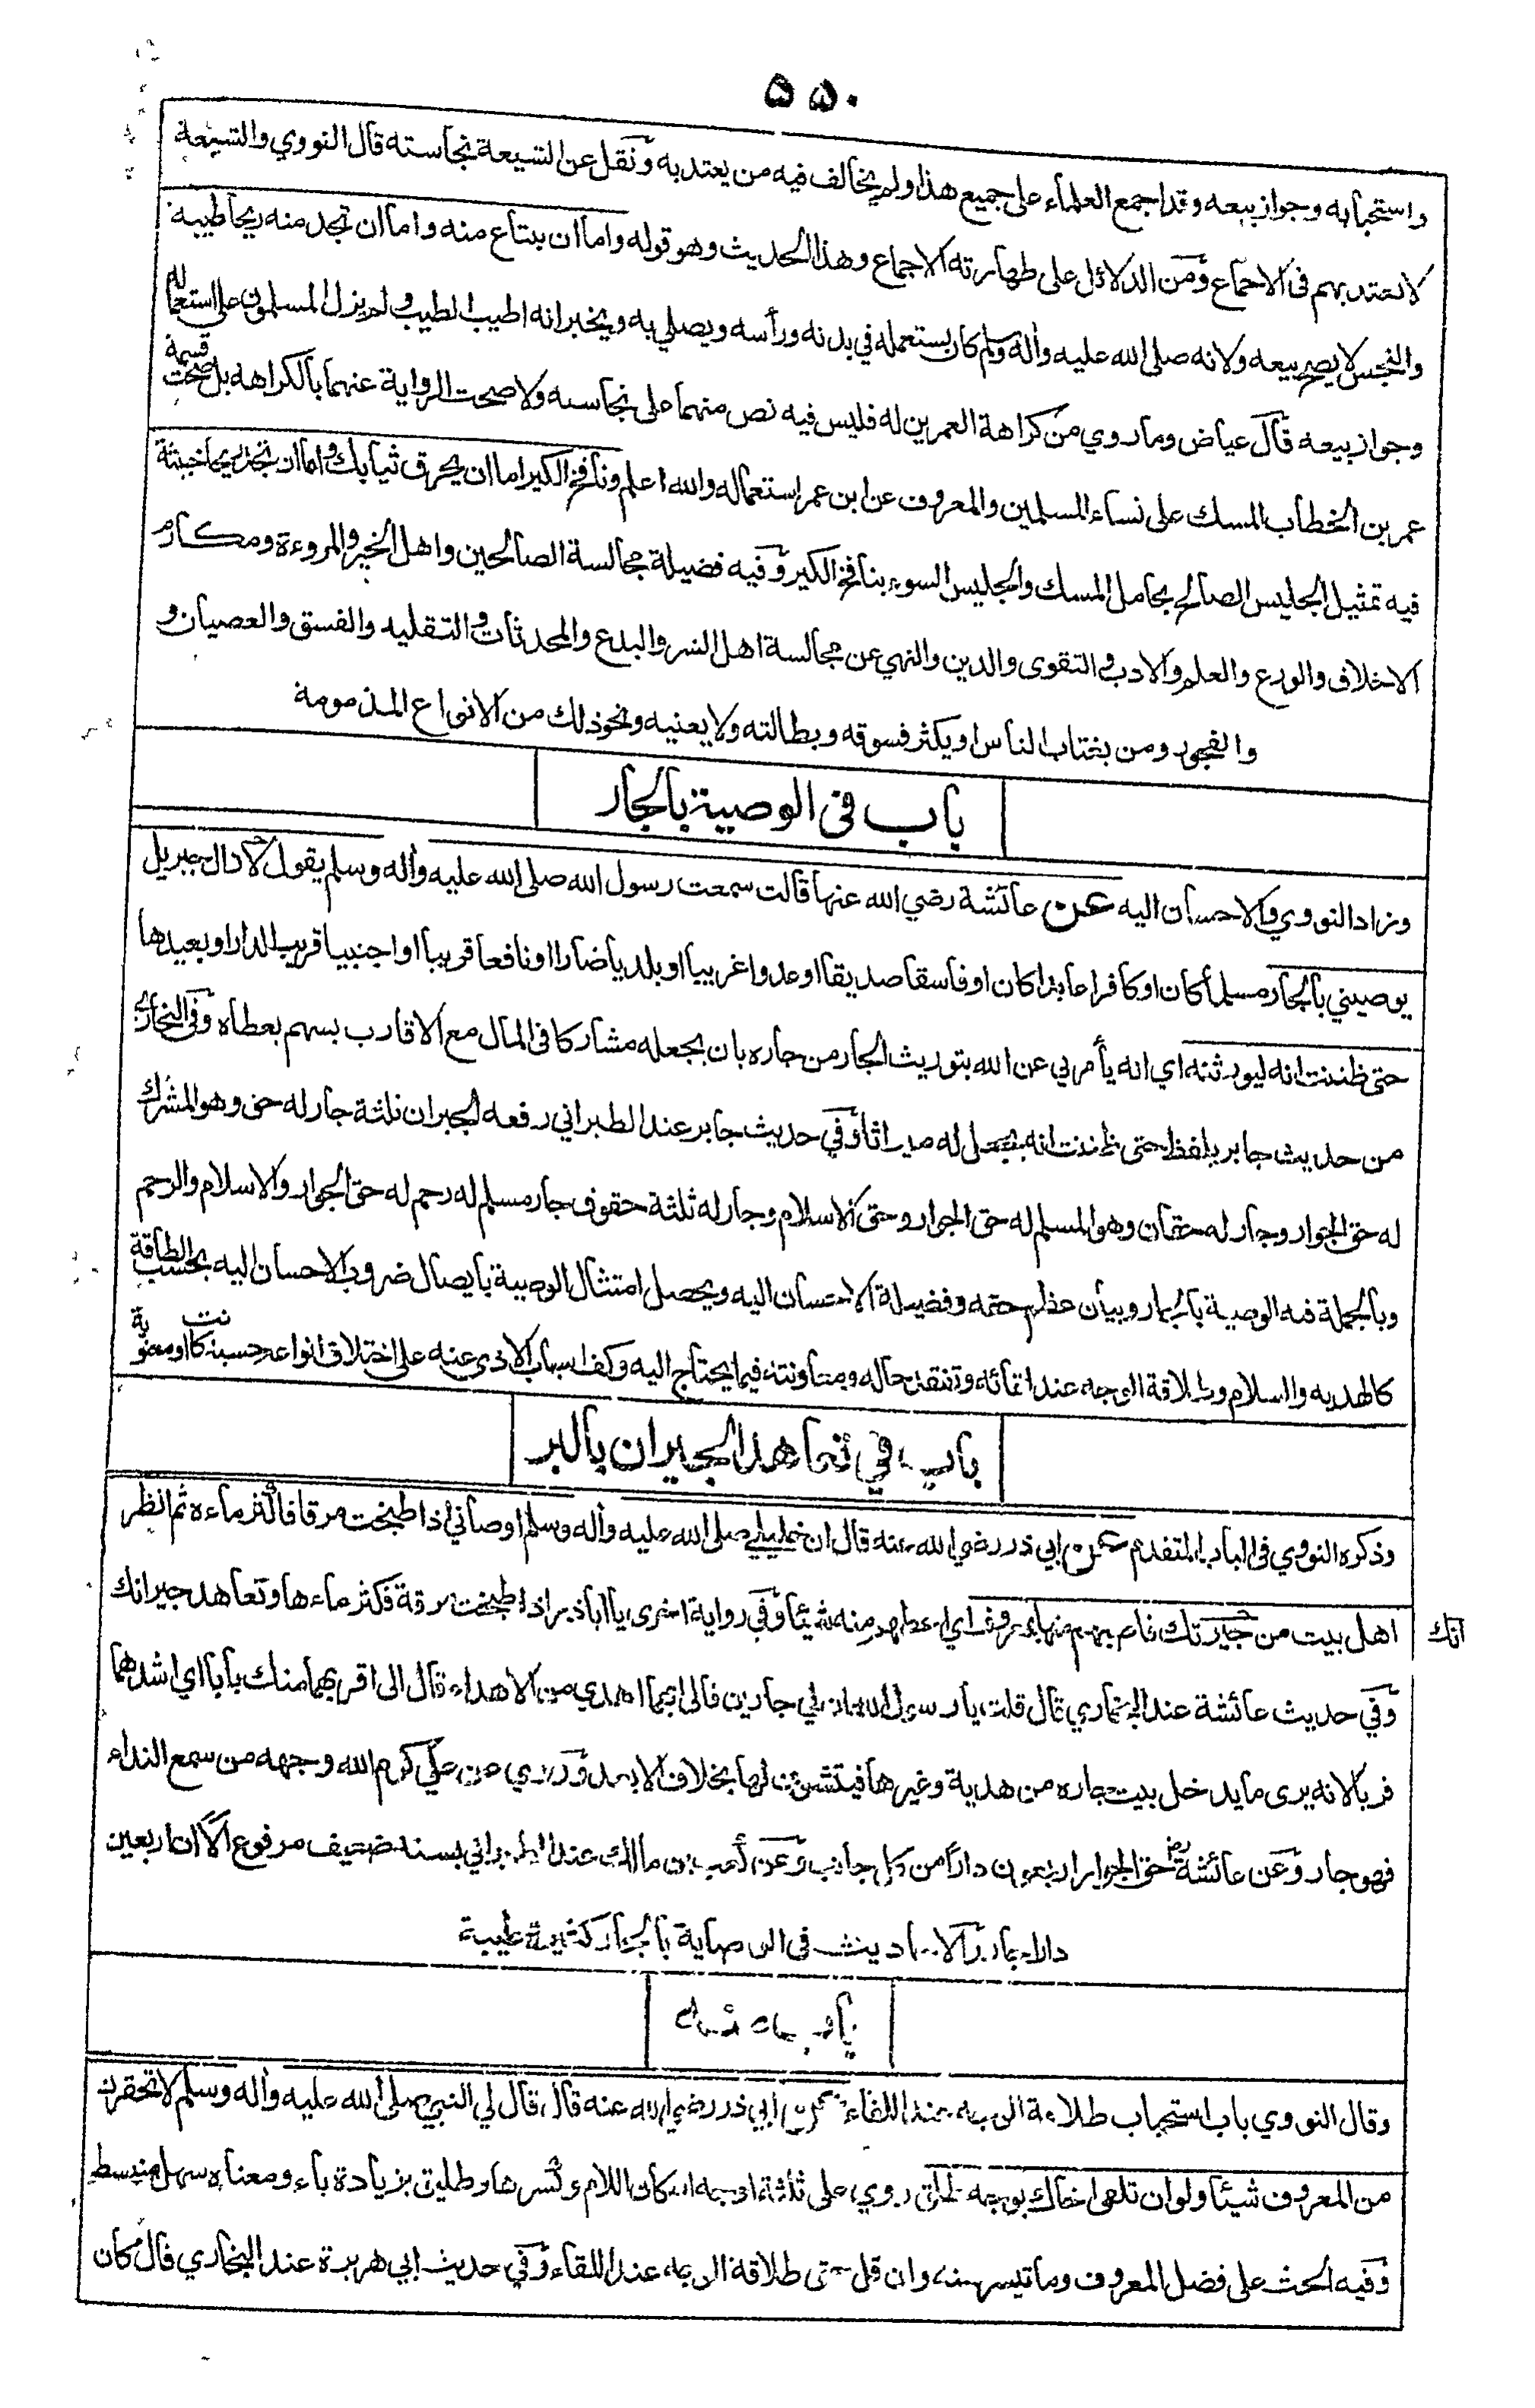 ٥٥٠
واستحبابه وجواز بيعه وقد اجمع العلماء على جميع هذا ولم يخالف فيه من يعتد به ونقل عن الشيعة نجاسته قال النووي والشيعة
لا يعتد بهم فى الاجماع ومن الدلائل على طهارته الاجماع وهذا الحديث وهو قوله واما ان يبتاع منه واما ان تجد منه ريحا طيبة
والنجس لا يصح بيعه ولانه صلى الله عليه واٰله وسلم كان يستعمله في بدنه ورأسه ويصلي به ويخبر انه اطيب الطيب ولم يزل المسلمون على استعماله
وجواز بيعه قال عياض وما روي من كراهة العمرين له فليس فيه نص منهما على نجاسته ولا صحت الرواية عنهما بالكراهة بل صحت قسمة
عمر بن الخطاب المسك على نساء المسلمين والمعروف عن ابن عمر استعماله والله اعلم ونافخ الكير اما ان يحرق ثيابك واما ان تجد ريحا خبيثة
فيه تمثيل الجليس الصالح بحامل المسك والجليس السوء بنافخ الكير وفيه فضيلة مجالسة الصالحين واهل الخير والمروءة ومكارم
الاخلاق والورع والعلم والادب والتقوى والدين والنهي عن مجالسة اهل الشر والبدع والمحدثات والتقليد والفسق والعصيان و
والفجور ومن يغتاب الناس او يكثر فسوقه وبطالته ولا يعنيه ونحو ذلك من الانواع المذمومة
باب فى الوصية بالجار
وزاد النووي والاحسان اليه عن عائشة رضي الله عنها قالت سمعت رسول الله صلى الله عليه واٰله وسلم يقول لا زال جبريل
يوصيني بالجار مسلما كان او كافرا عابدا كان او فاسقا صديقا او عدوا غريبا او بلديا ضارا او نافعا قريبا او اجنبيا قريب الدار او بعيدها
حتى ظننت انه ليورثنه اي انه يأمرني عن الله بتوريث الجار من جاره بان يجعله مشاركا فى المال مع الاقارب بسهم يعطاه وفى البخاري
من حديث جابر بلفظ حتى ظننت انه يجعل له ميراثا وفي حديث جابر عند الطبراني رفعه الجيران ثلثة جار له حق وهو المشرك
له حق الجوار وجار له حقان وهو المسلم له حق الجوار وحق الاسلام وجار له ثلثة حقوق جار مسلم له رحم له حق الجوار والاسلام والرحم
وبالجملة فيه الوصية بالجار وبيان عظم حقه وفضيلة الاحسان اليه ويحصل امتثال الوصية بايصال ضروب الاحسان اليه بحسب الطاقة
كالهدية والسلام وطلاقة الوجه عند لقائه وتفقد حاله ومعاونته فيما يحتاج اليه وكف اسباب الاذى عنه على اختلاف انواعه حسية كانت او معنوية
باب في تعاهد الجيران بالبر
وذكره النووي فى الباب المتقدم عن ابي ذر رضي الله عنه قال ان خليلي صلى الله عليه واٰله وسلم اوصاني اذا طبخت مرقا فاكثر ماءه ثم انظر
اهل بيت من جيرتك فاصبهم منها بمعروف اي اعطهم منه شيئا وفي رواية اخرى يا اباذر اذا طبخت مرقة فكثر ماءها وتعاهد جيرانك
انك
وفي حديث عائشة عند البخاري قال قلت يا رسول الله ان لي جارين فالى ايهما اهدي من الاهداء قال الى اقربهما منك بابا اي اشدهما
قربا لانه يرى ما يدخل بيت جاره من هدية وغيرها فيتشوف لها بخلاف الابعد وروي عن علي كرم الله وجهه من سمع النداء
فهو جار وعن عائشة رض حق الجوار اربعون دارا من كل جانب وعن كعب بن مالك عند الطبراني بسند ضعيف مرفوع الا ان اربعين
دارا جار والاحاديث فى الوصاية بالجار كثيرة طيبة
باب منه
وقال النووي باب استحباب طلاقة الوجه عند اللقاء عن ابي ذر رضي الله عنه قال قال لي النبي صلى الله عليه واٰله وسلم لا تحقرن
من المعروف شيئا ولو ان تلقى اخاك بوجه طلق روي على ثلثة اوجه اسكان اللام وكسرها وطليق بزيادة ياء ومعناه سهل منبسط
وفيه الحث على فضل المعروف وما تيسر منه وان قل حتى طلاقة الوجه عند اللقاء وفي حديث ابي هريرة عند البخاري قال كان